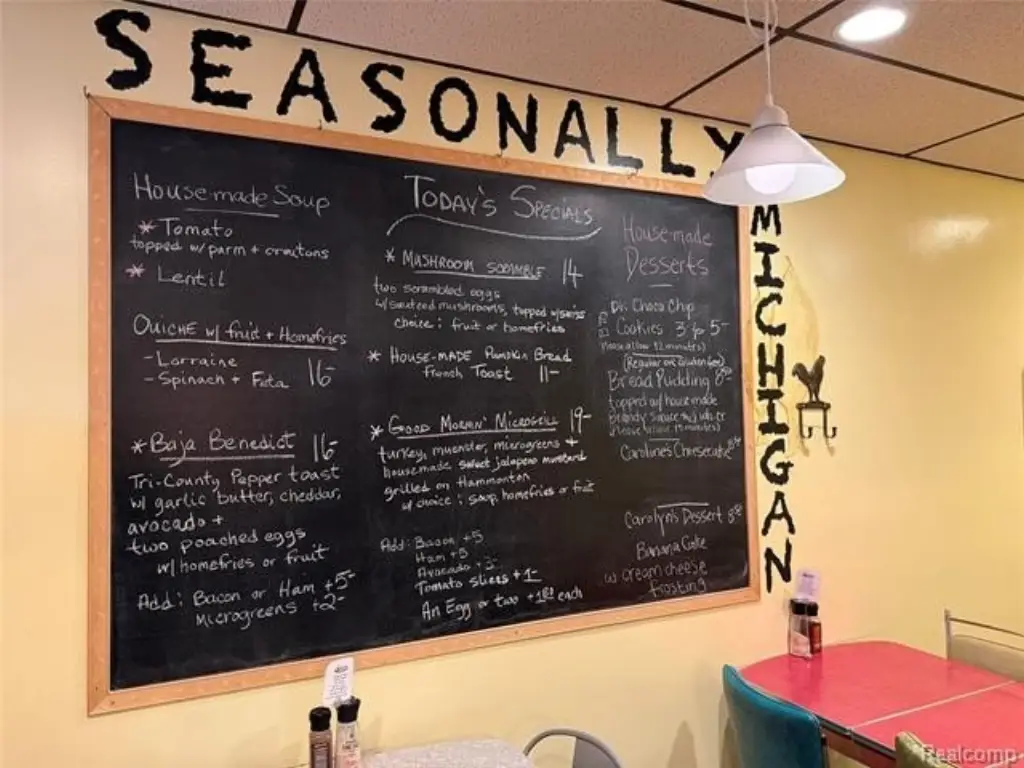 SEASONALLY
MICHIGAN
House-made Soup
* Tomato
topped w/ parm + croutons
* Lentil
QUICHE w/ fruit + Homefries
- Lorraine
- Spinach + Feta 16-
* Baja Benedict 16-
Tri-County Pepper toast
w/ garlic butter, cheddar,
avocado +
two poached eggs
w/ homefries or fruit
Add: Bacon or Ham +5-
Microgreens +2-
TODAY'S SPECIALS
* MUSHROOM SCRAMBLE 14
two scrambled eggs
w/ sauteed mushrooms, topped w/ swiss
choice: fruit or homefries
* HOUSE-MADE Pumpkin Bread
French Toast 11-
* GOOD MORNIN' MICROGRILL 19-
turkey, muenster, microgreens +
housemade sweet jalapeno mustard
grilled on Hammonton
w/ choice: soup, homefries or fruit
Add: Bacon +5
Ham +5
Avocado +3-
Tomato slices +1-
An Egg or two each
House-made
Desserts
Choco Chip
Cookies 3 for 5-
Please allow 12 minutes)
Bread Pudding
topped w/ housemade
brandy sauce
Please allow minutes)
Caroline's Cheesecake
Carolyn's Dessert
Banana Cake
w/ cream cheese
frosting
Realcomp